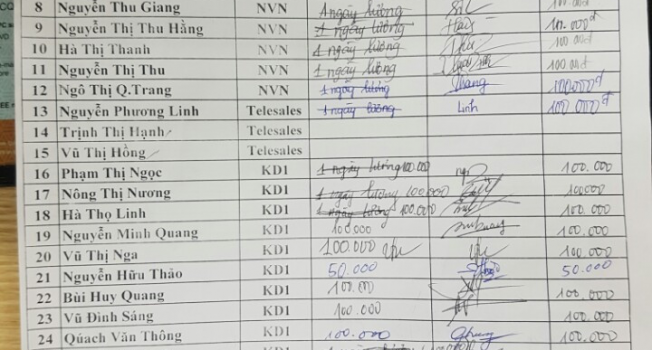 8 Nguyễn Thu Giang NVN 1 ngày lương 100.000đ
9 Nguyễn Thị Thu Hằng NVN 1 ngày lương Hằng 100.000đ
10 Hà Thị Thanh NVN 1 ngày lương 100.000đ
11 Nguyễn Thị Thu NVN 1 ngày lương 100.000đ
12 Ngô Thị Q.Trang NVN 1 ngày lương 100.000đ
13 Nguyễn Phương Linh Telesales 1 ngày lương Linh 100.000đ
14 Trịnh Thị Hạnh Telesales
15 Vũ Thị Hồng Telesales
16 Phạm Thị Ngọc KD1 1 ngày lương 100.000 100.000
17 Nông Thị Nương KD1 1 ngày lương 100.000 100000
18 Hà Thọ Linh KD1 1 ngày lương 100.000 100.000
19 Nguyễn Minh Quang KD1 100.000 100.000
20 Vũ Thị Nga KD1 100.000 100.000
21 Nguyễn Hữu Thảo KD1 50.000 50.000
22 Bùi Huy Quang KD1 100.000 100.000
23 Vũ Đình Sáng KD1 100.000 100.000
24 Qúach Văn Thông KD1 100.000 100.000